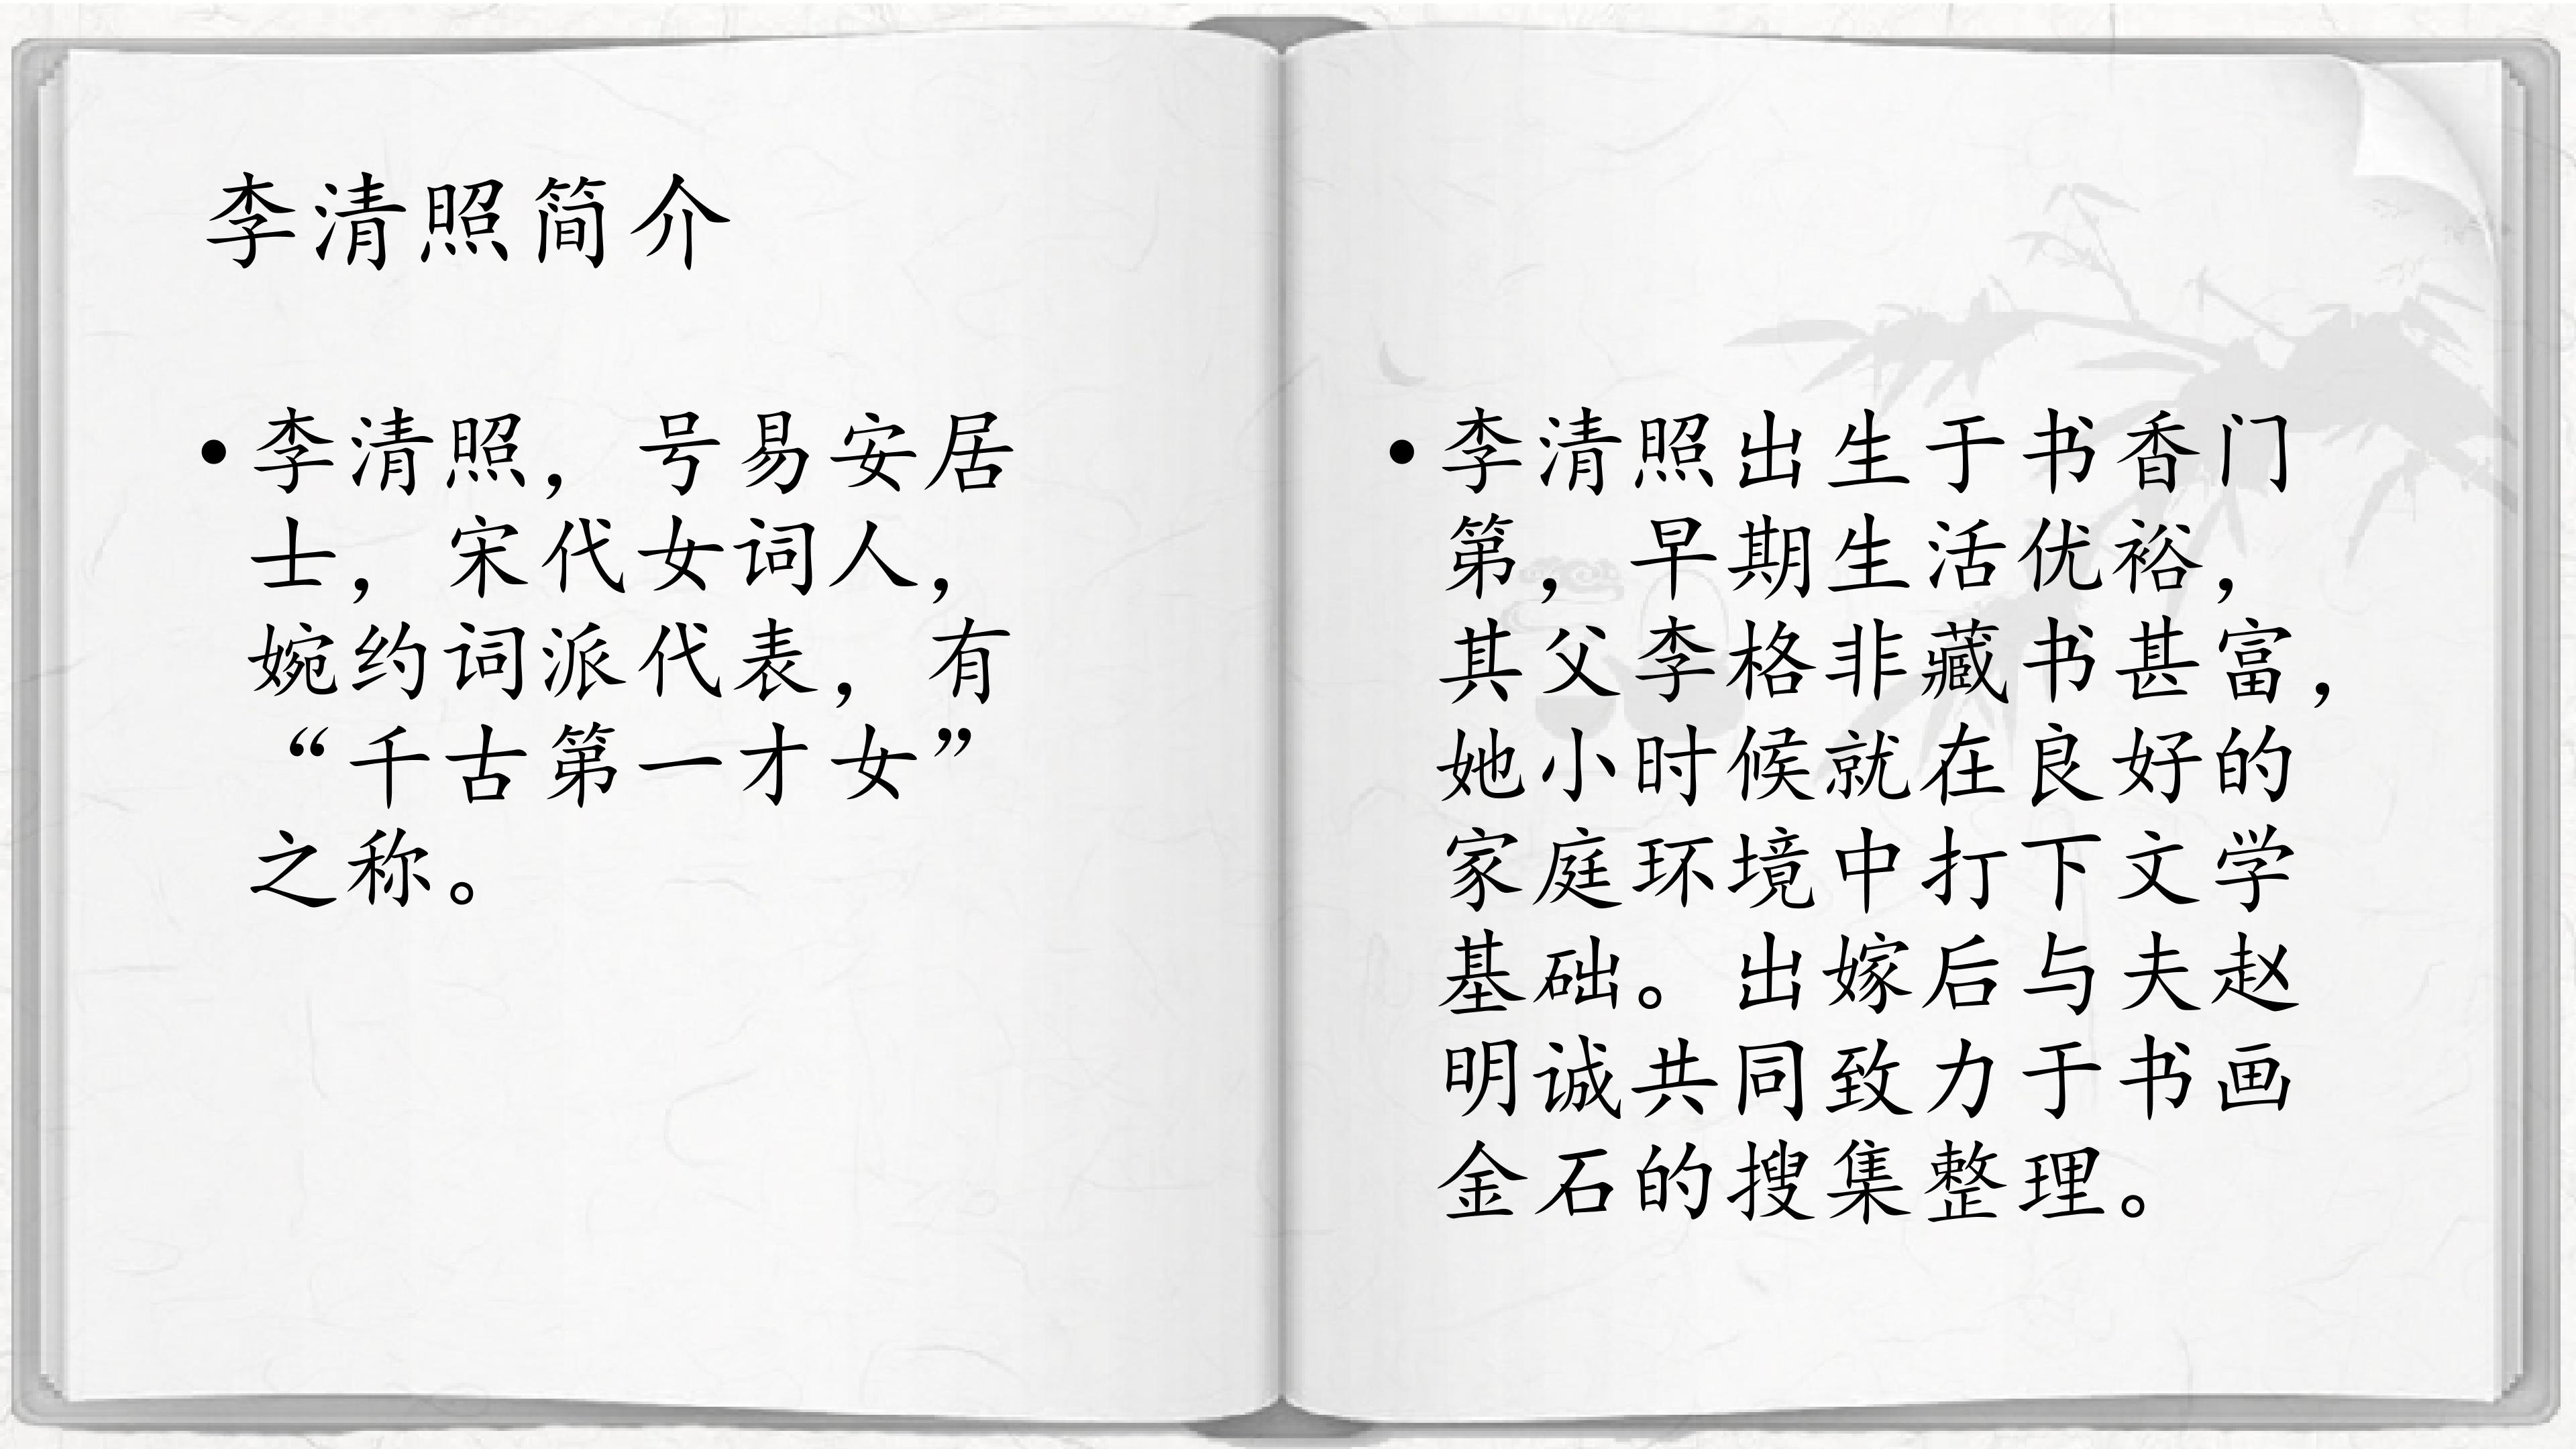 李清照简介
• 李清照，号易安居
士，宋代女词人，
婉约词派代表，有
“千古第一才女”
之称。
• 李清照出生于书香门
第，早期生活优裕，
其父李格非藏书甚富，
她小时候就在良好的
家庭环境中打下文学
基础。出嫁后与夫赵
明诚共同致力于书画
金石的搜集整理。